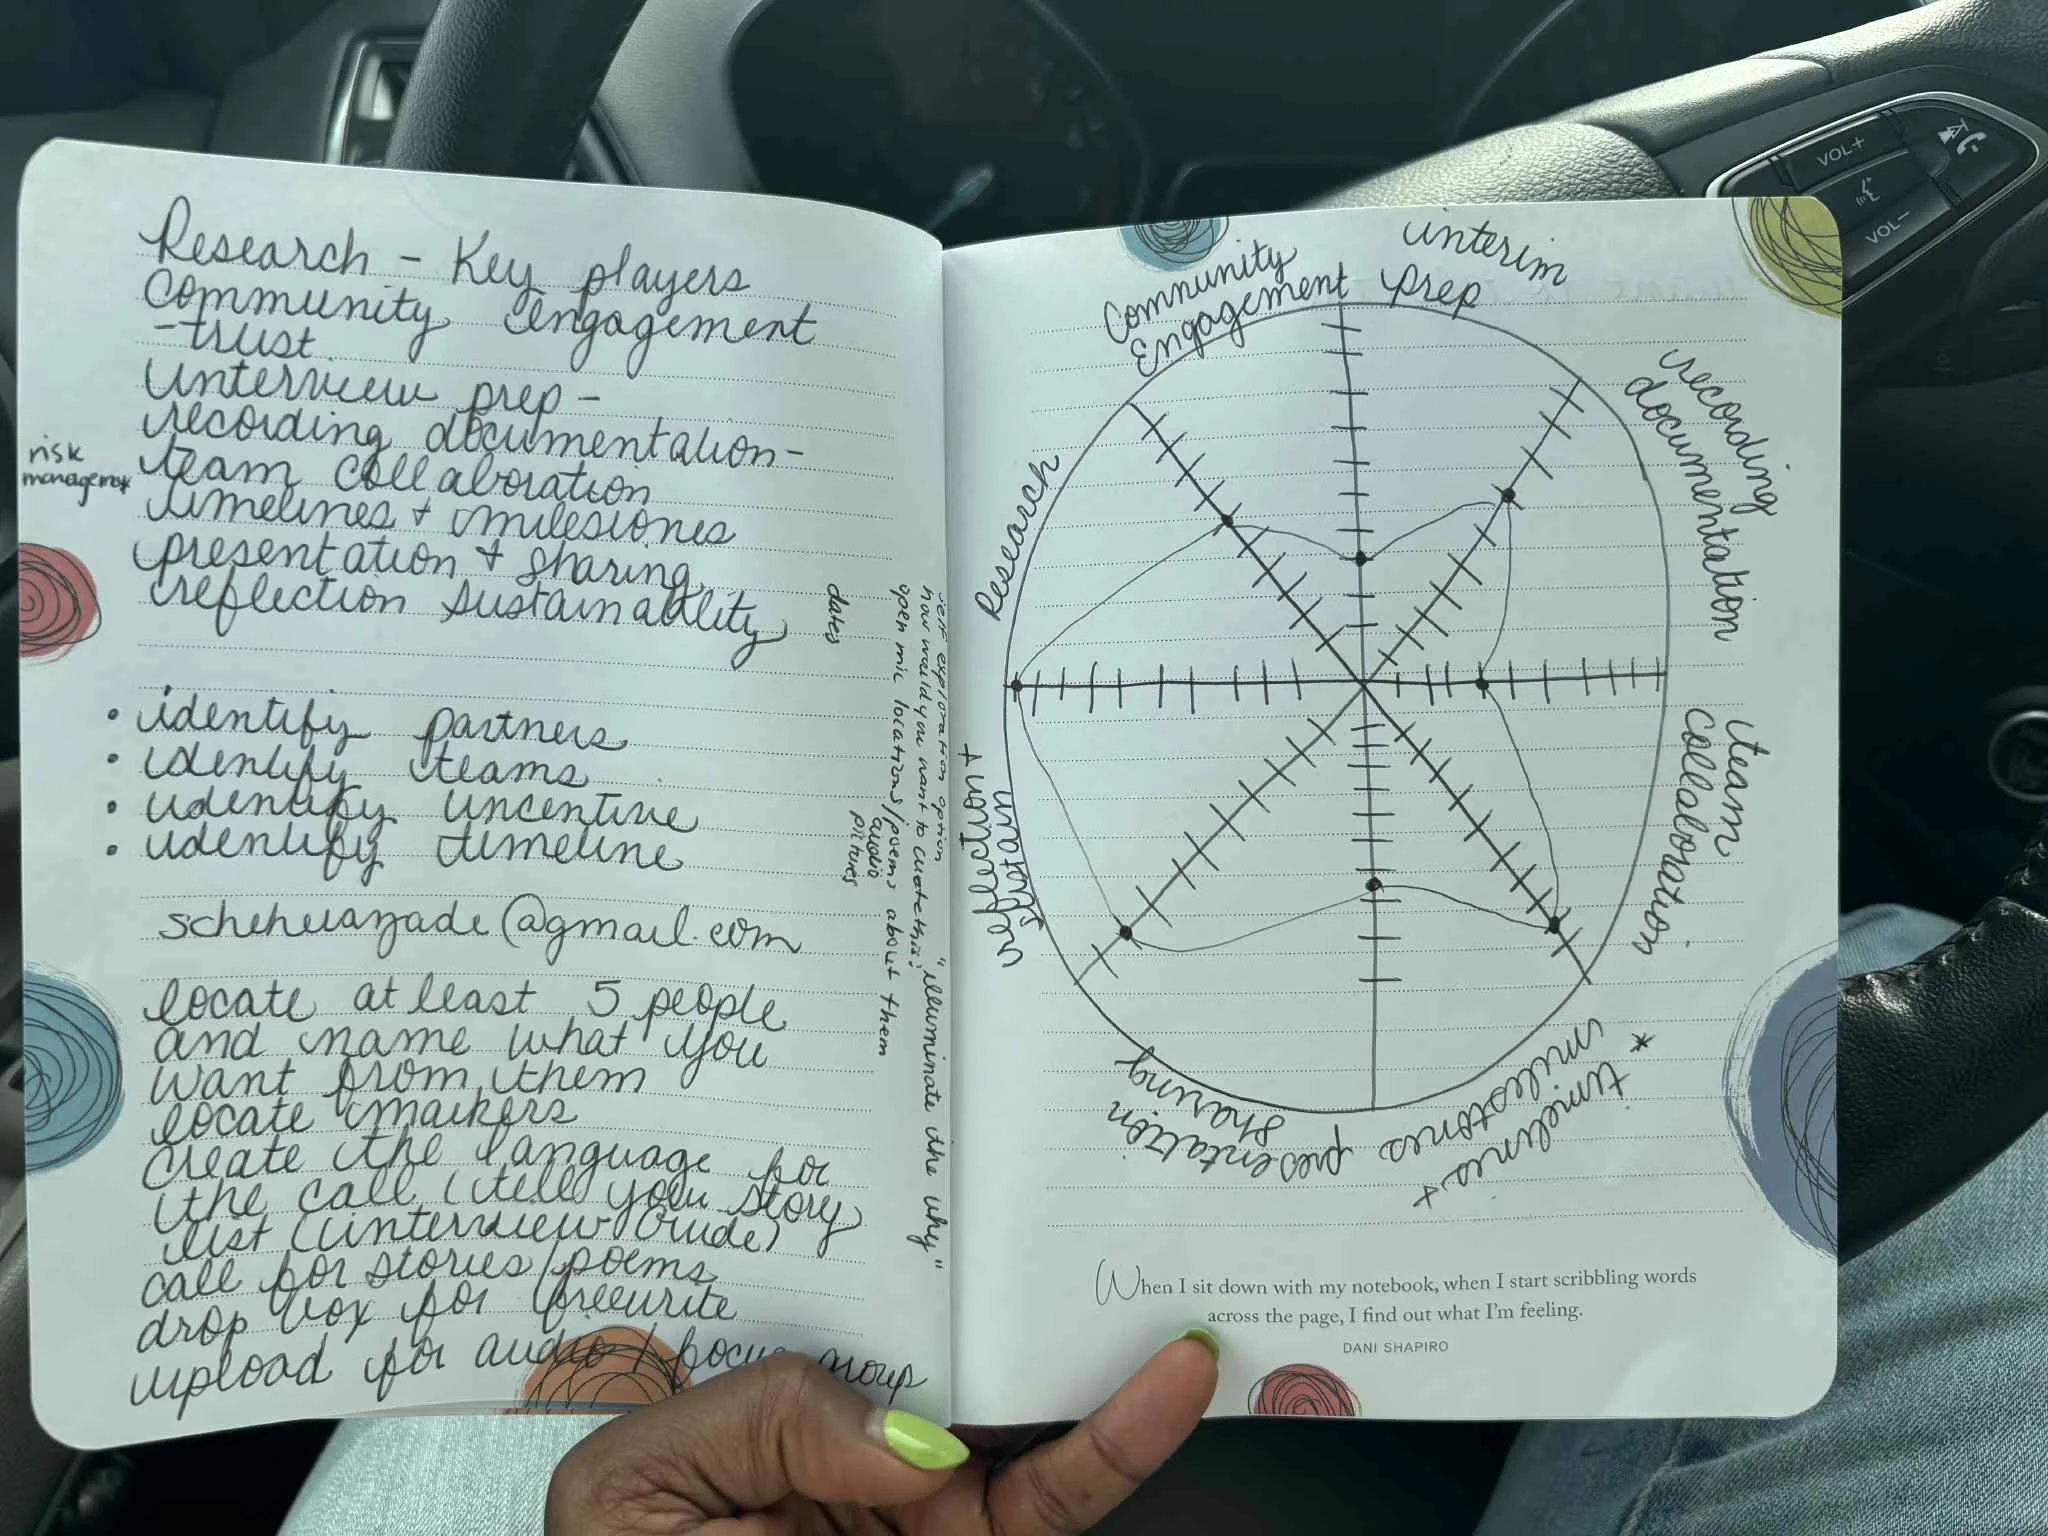 Research - Key players
Community Engagement
- trust
interview prep -
recording documentation -
team collaboration
timelines + milestones
presentation + sharing
reflection sustainability
risk
management
• identify partners
• identify teams
• identify incentive
• identify timeline
scheherazade@gmail.com
locate at least 5 people
and name what you
want from them
locate markers
create the language for
the call (tell your story
list (interview Guide)
call for stories/poems
drop box for freewrite
upload for audio / focus group
dates
self exploration option
how would you want to curate this?
open mic locations/poems about them
audio
pictures
"illuminate the why"
Community
Engagement
interim
prep
recording
documentation
team
collaboration
*
timelines +
milestones
presentation
sharing
reflection +
sustain
Research
When I sit down with my notebook, when I start scribbling words
across the page, I find out what I'm feeling.
DANI SHAPIRO
VOL+
VOL-